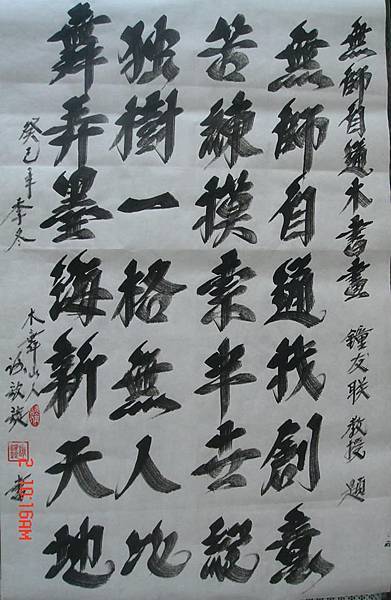 無師自通木書畫 鐘友联教授題
無師自通找創意
苦練摸索半世縱
独樹一格無人比
舞弄墨海新天地
癸巳年季冬
木舞山人
10:16AM